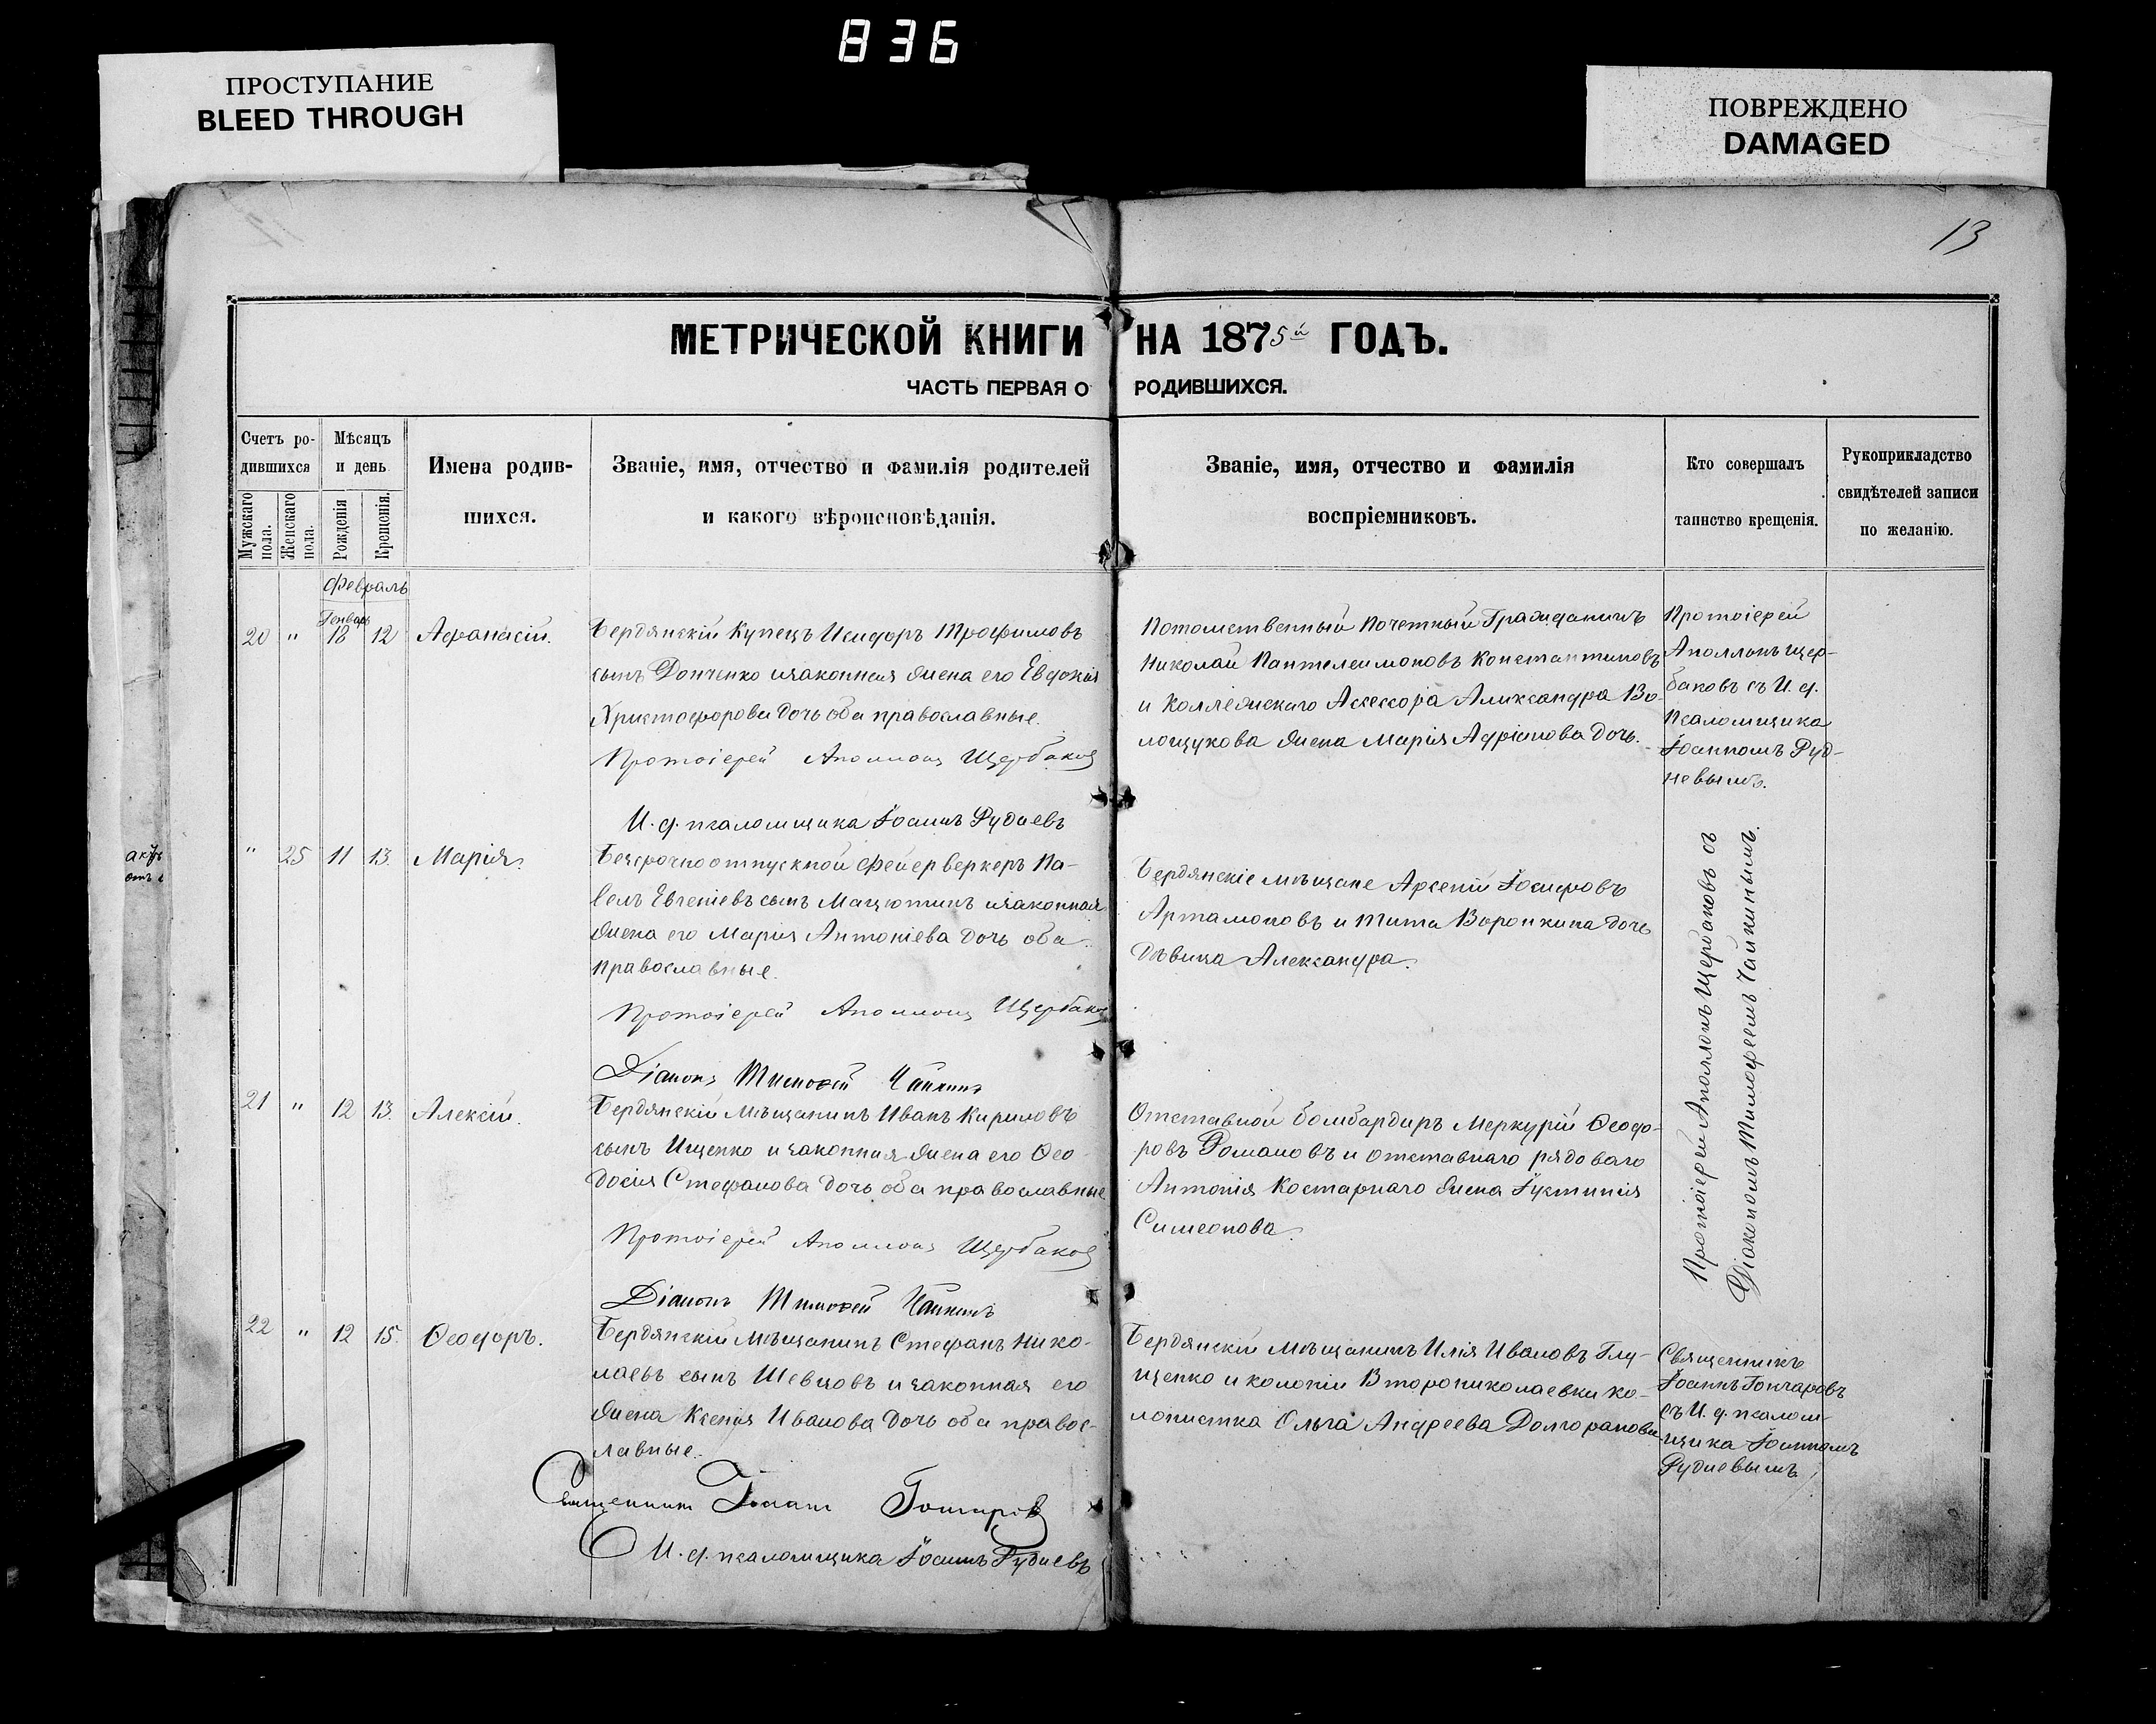 836
ПРОСТУПАНИЕ
BLEED THROUGH
ПОВРЕЖДЕНО
DAMAGED
13
МЕТРИЧЕСКОЙ КНИГИ НА 1875й ГОДЪ.
ЧАСТЬ ПЕРВАЯ О РОДИВШИХСЯ.
Счетъ ро-
дившихся
Мужскаго пола.
Женскаго пола.
Мѣсяцъ
и день
Рожденія
Крещенія.
Имена родив-
шихся.
Званіе, имя, отчество и фамилія родителей
и какого вѣроисповѣданія.
Званіе, имя, отчество и фамилія
воспріемниковъ.
Кто совершалъ
таинство крещенія.
Рукоприкладство
свидѣтелей записи
по желанію.
Февраль
Генварь
20 " 18 12 Афанасій.
Бердянскій Купецъ Исидоръ Трофимовъ
сынъ Донченко изаконная жена его Евдокія
Христофорова дочь оба православные.
Протоіерей Аполлонъ Щербаковъ
И. д. псаломщика Іоаннъ Рудневъ
Потомственный Почетный Гражданинъ
Николай Пантелеимоновъ Константиновъ
и Коллежскаго Ассессора Александра Во-
лощукова жена Марія Адріанова дочь.
Протоіерей
Аполлонъ Щер-
баковъ съ И. д.
Псаломщика
Іоанномъ Руд-
невымъ.
" 25 11 13. Марія.
Безсрочноотпускной фейерверкеръ Па-
велъ Евгеніевъ сынъ Мацютинъ изаконная
жена его Марія Антоніева дочь оба
православные.
Протоіерей Аполлонъ Щербаковъ
Діаконъ Тимофей Чайкинъ
Бердянскіе мѣщане Арсеній Іосифовъ
Артамоновъ и Тита Воронкина дочь
дѣвица Александра.
Протоіерей Аполлонъ Щербаковъ съ
Діакономъ Тимофеемъ Чайкинымъ.
21 " 12 13. Алексій.
Бердянскій Мѣщанинъ Иванъ Кириловъ
сынъ Ищенко и законная жена его Ѳео
досія Стефанова дочь оба православные
Протоіерей Аполлонъ Щербаковъ
Діаконъ Тимофей Чайкинъ
Отставной бомбардиръ Меркурій Ѳеодо-
ровъ Романовъ и отставнаго рядоваго
Антонія Костарнаго жена Іустинія
Симеонова.
22 " 12 15. Ѳеодоръ.
Бердянскій Мѣщанинъ Стефанъ Нико-
лаевъ сынъ Шевцовъ и законная его
жена Ксенія Иванова дочь оба правос-
лавные.
Священникъ Іоаннъ Гончаровъ
И. д. псаломщика Іоаннъ Рудневъ
Бердянскій Мѣщанинъ Илія Ивановъ Глу-
щенко и колоніи Второниколаевки ко-
лонистка Ольга Андреева
Священникъ
Іоаннъ Гончаровъ
съ И. д. псалом-
щика Іоанномъ
Рудневымъ.